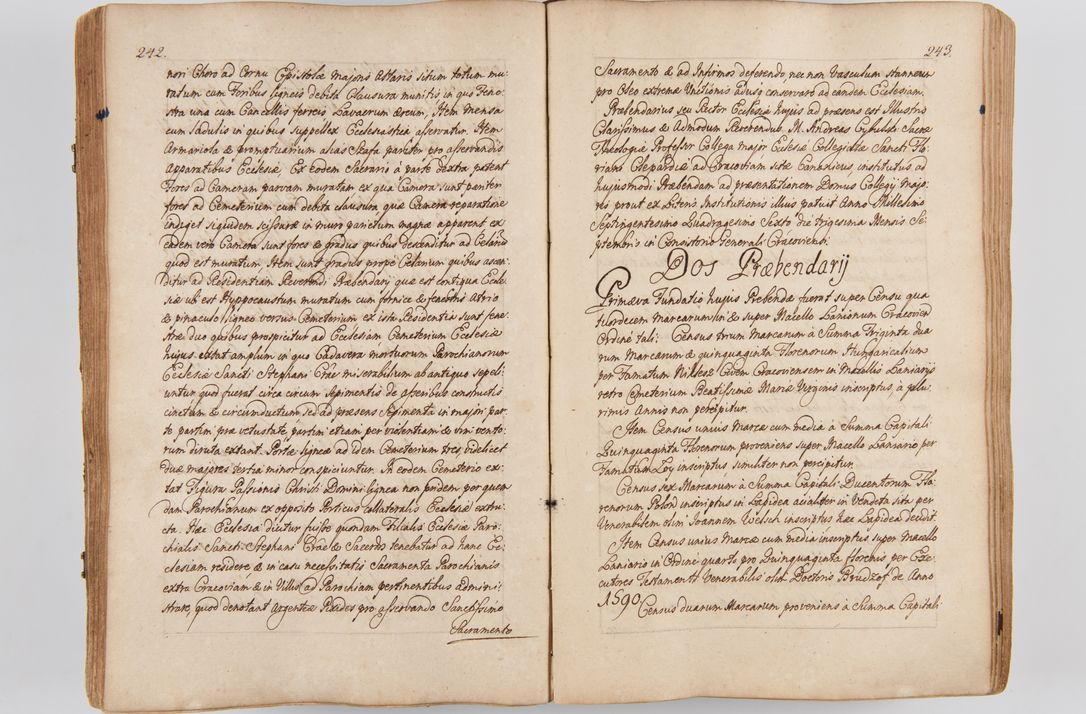 242.
nori Choro ad Cornu Epistolæ Majoris Altaris situm totum mu-
ratum cum Foribus ligneis debita Clausura munitis in quo Fene-
stra una cum Cancellis ferreis Lavacrum æreum, Item mensa
cum Ladulis in quibus suppellex Ecclesiastica asservatur. Item
Armariola & promptuarium alias Szafa pariter pro asservandis
Apparatibus Ecclesiæ, Ex eodem Sacrario à parte dextra patent
Fores ad Cameram parvam muratam ex qua Camera sunt pariter
fores ad Cemeterium cum debita clausura, quæ Camera reparatione
indiget siquidem scissuræ in muro parietum magnæ apparent ex
eadem vero Camera sunt fores & gradus quibus descenditur ad Celariu
quod est muratum. Item sunt gradus prope Celarium quibus ascen-
ditur ad Residentiam Reverendi Præbendarij quæ est contigua Eccle-
siæ ubi est Hyppocaustum muratum cum fornice & fenestris Atrio
& pinaculo ligneo versus Cemeterium ex ista Residentia sunt fene-
stræ duo quibus prospicitur ad Ecclesiam Cemeterium Ecclesiæ
hujus extat amplum in quo Cadavera mortuorum Parochianorum
Ecclesiæ Sancti Stephani Crac: miserabilium ab antiquo sepeli-
untur quod fuerat circa circum Sepimentis de asseribus constructis
cinctum & circumductum sed ad præsens Sepimenta in majori par-
te partim præ vetustate partim etiam per violentiam & vim vento-
rum diruta extant. Portæ ligneæ ad idem Cemeterium tres videlicet
duæ majores tertia minor conspiciuntur. In eodem Cemeterio ex-
tat Figura Passionis Christi Domini lignea non pridem per quen-
dam Parochianum ex opposito Porticus collateralis Ecclesiæ extru-
cta Hæc Ecclesia dicitur fuisse quondam Filialis Ecclesiæ Paro-
chialis Sancti Stephani Crac: & Sacerdos tenebatur ad hanc Ec-
clesiam residere & in casu necessitatis Sacramenta Parochianis
extra Cracoviam & in Villis ad Parochiam pertinentibus admini-
strare, quod denotant Argenteæ Pixides pro asservando Sanctissimo
Sacramento
243.
Sacramento & ad Infirmos deferendo nec non Vasculum stanneum
pro Oleo extremæ Unctionis adusq conservare ad eandem Ecclesiam.
Præbendarius seu Rector Ecclesiæ hujus ad præsens est Illustris
Clarissimus & Admodum Reverendus M. Andreas Cybulski Sacræ
Theologiæ Professor Collega major Ecclesiæ Collegiatæ Sancti Flo-
riani Clepardiæ ad Cracoviam sitæ Canonicus, institutus ad
hujusmodi Præbendam ad præsentationem Domus Collegij majo-
ris prout ex Literis Institutionis illius patuit Anno Millesimo
Septingentesimo Quadragesimo Sexto die trigesima Mensis Se-
ptembris in Consistorio Generali Cracoviensi.
Dos Præbendarij
Primæva Fundatio hujus Prebendæ fuerat super Censu qua
tuordecem Marcarum super Macello Lanionum Cracovien
Ordine tali: Census trium Marcarum à Summa Triginta dua
rum Marcarum & quinquaginta Florenorum Hungaricalium
per Famatum Civem Cracoviensem in Macello Laniarijs
retro Cemeterium Beatissimæ Mariæ Virginis inscriptus, à plu-
rimis Annis non percipitur.
Item Census unius Marcæ cum media à Summa Capitali
Quinquaginta Florenorum proveniens super Macello Laniario per
Famatum Loy inscriptus similiter non percipitur.
Census sex Marcarum à Summa Capitali Ducentorum Flo
renorum Polon inscriptus in Lapidea acialiter in Vendeta sita per
Venerabilem olim Joannem Welsch inscriptus hæc Lapidea decidit.
Item Census unius Marcæ cum media inscriptus super Macello
Laniario in Ordine quarto pro Quinquaginta florenis per Exe
cutores Testamenti Venerabilis olim Doctoris Brudzof de Anno
1590 Census duarum Marcarum proveniens à Summa Capitali